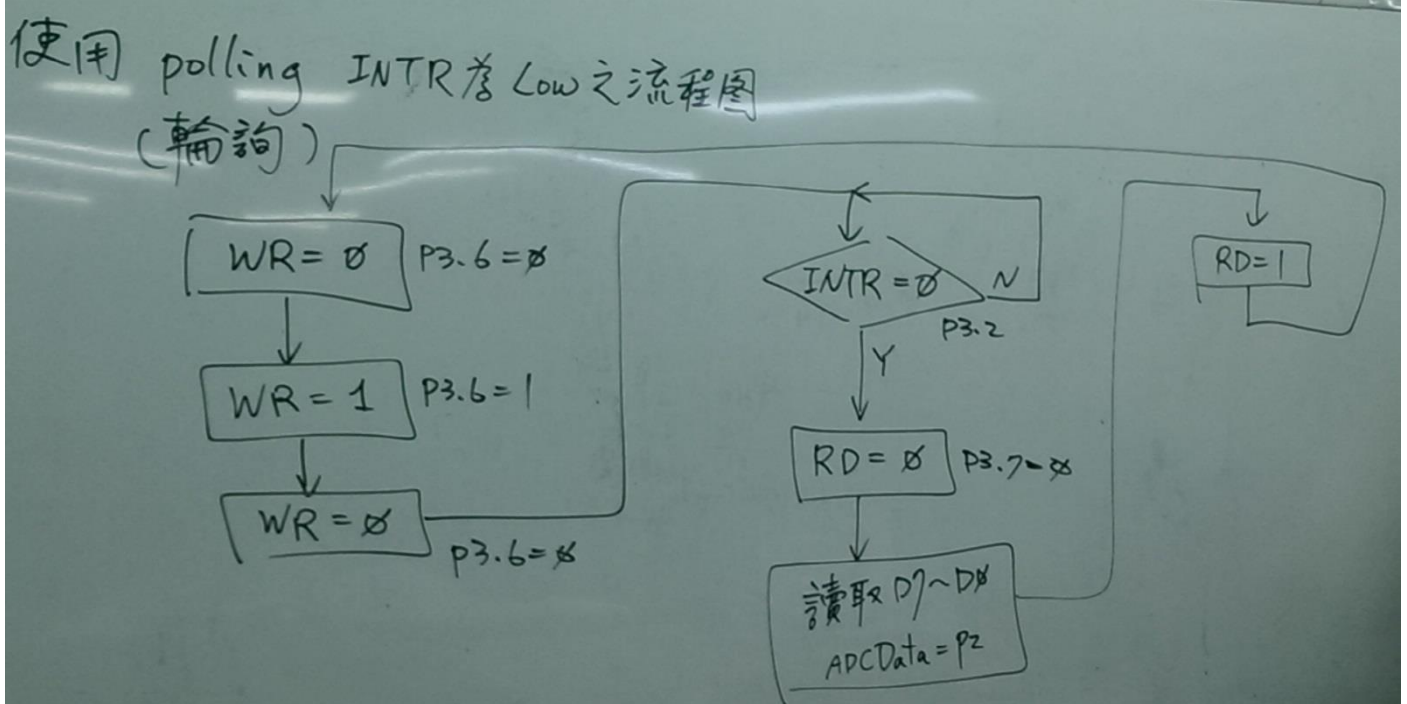 使用 polling INTR為Low之流程图
(輪詢)
WR=0
P3.6=0
WR=1
P3.6=1
WR=0
P3.6=0
INTR=0
N
P3.2
Y
RD=0
P3.7=0
讀取D7~D0
ADCData=P2
RD=1